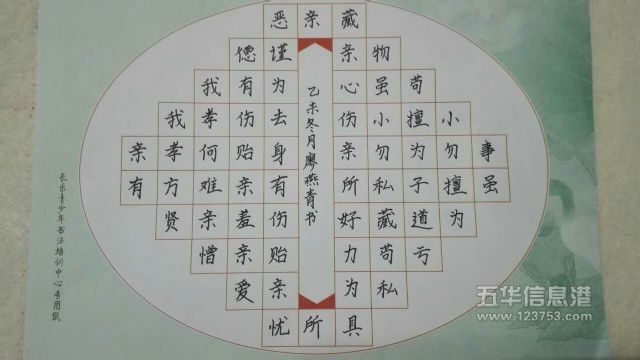 事虽
小勿擅为
苟擅为子道亏
物虽小勿私藏苟私
藏亲心伤亲所好力为具
亲所
乙未冬月廖燕青书
恶谨为去身有伤贻亲忧
德有伤贻亲羞亲爱
我孝何难亲憎
我孝方贤
亲有
长乐青少年书法培训中心专用纸
五华信息港
www.123753.com